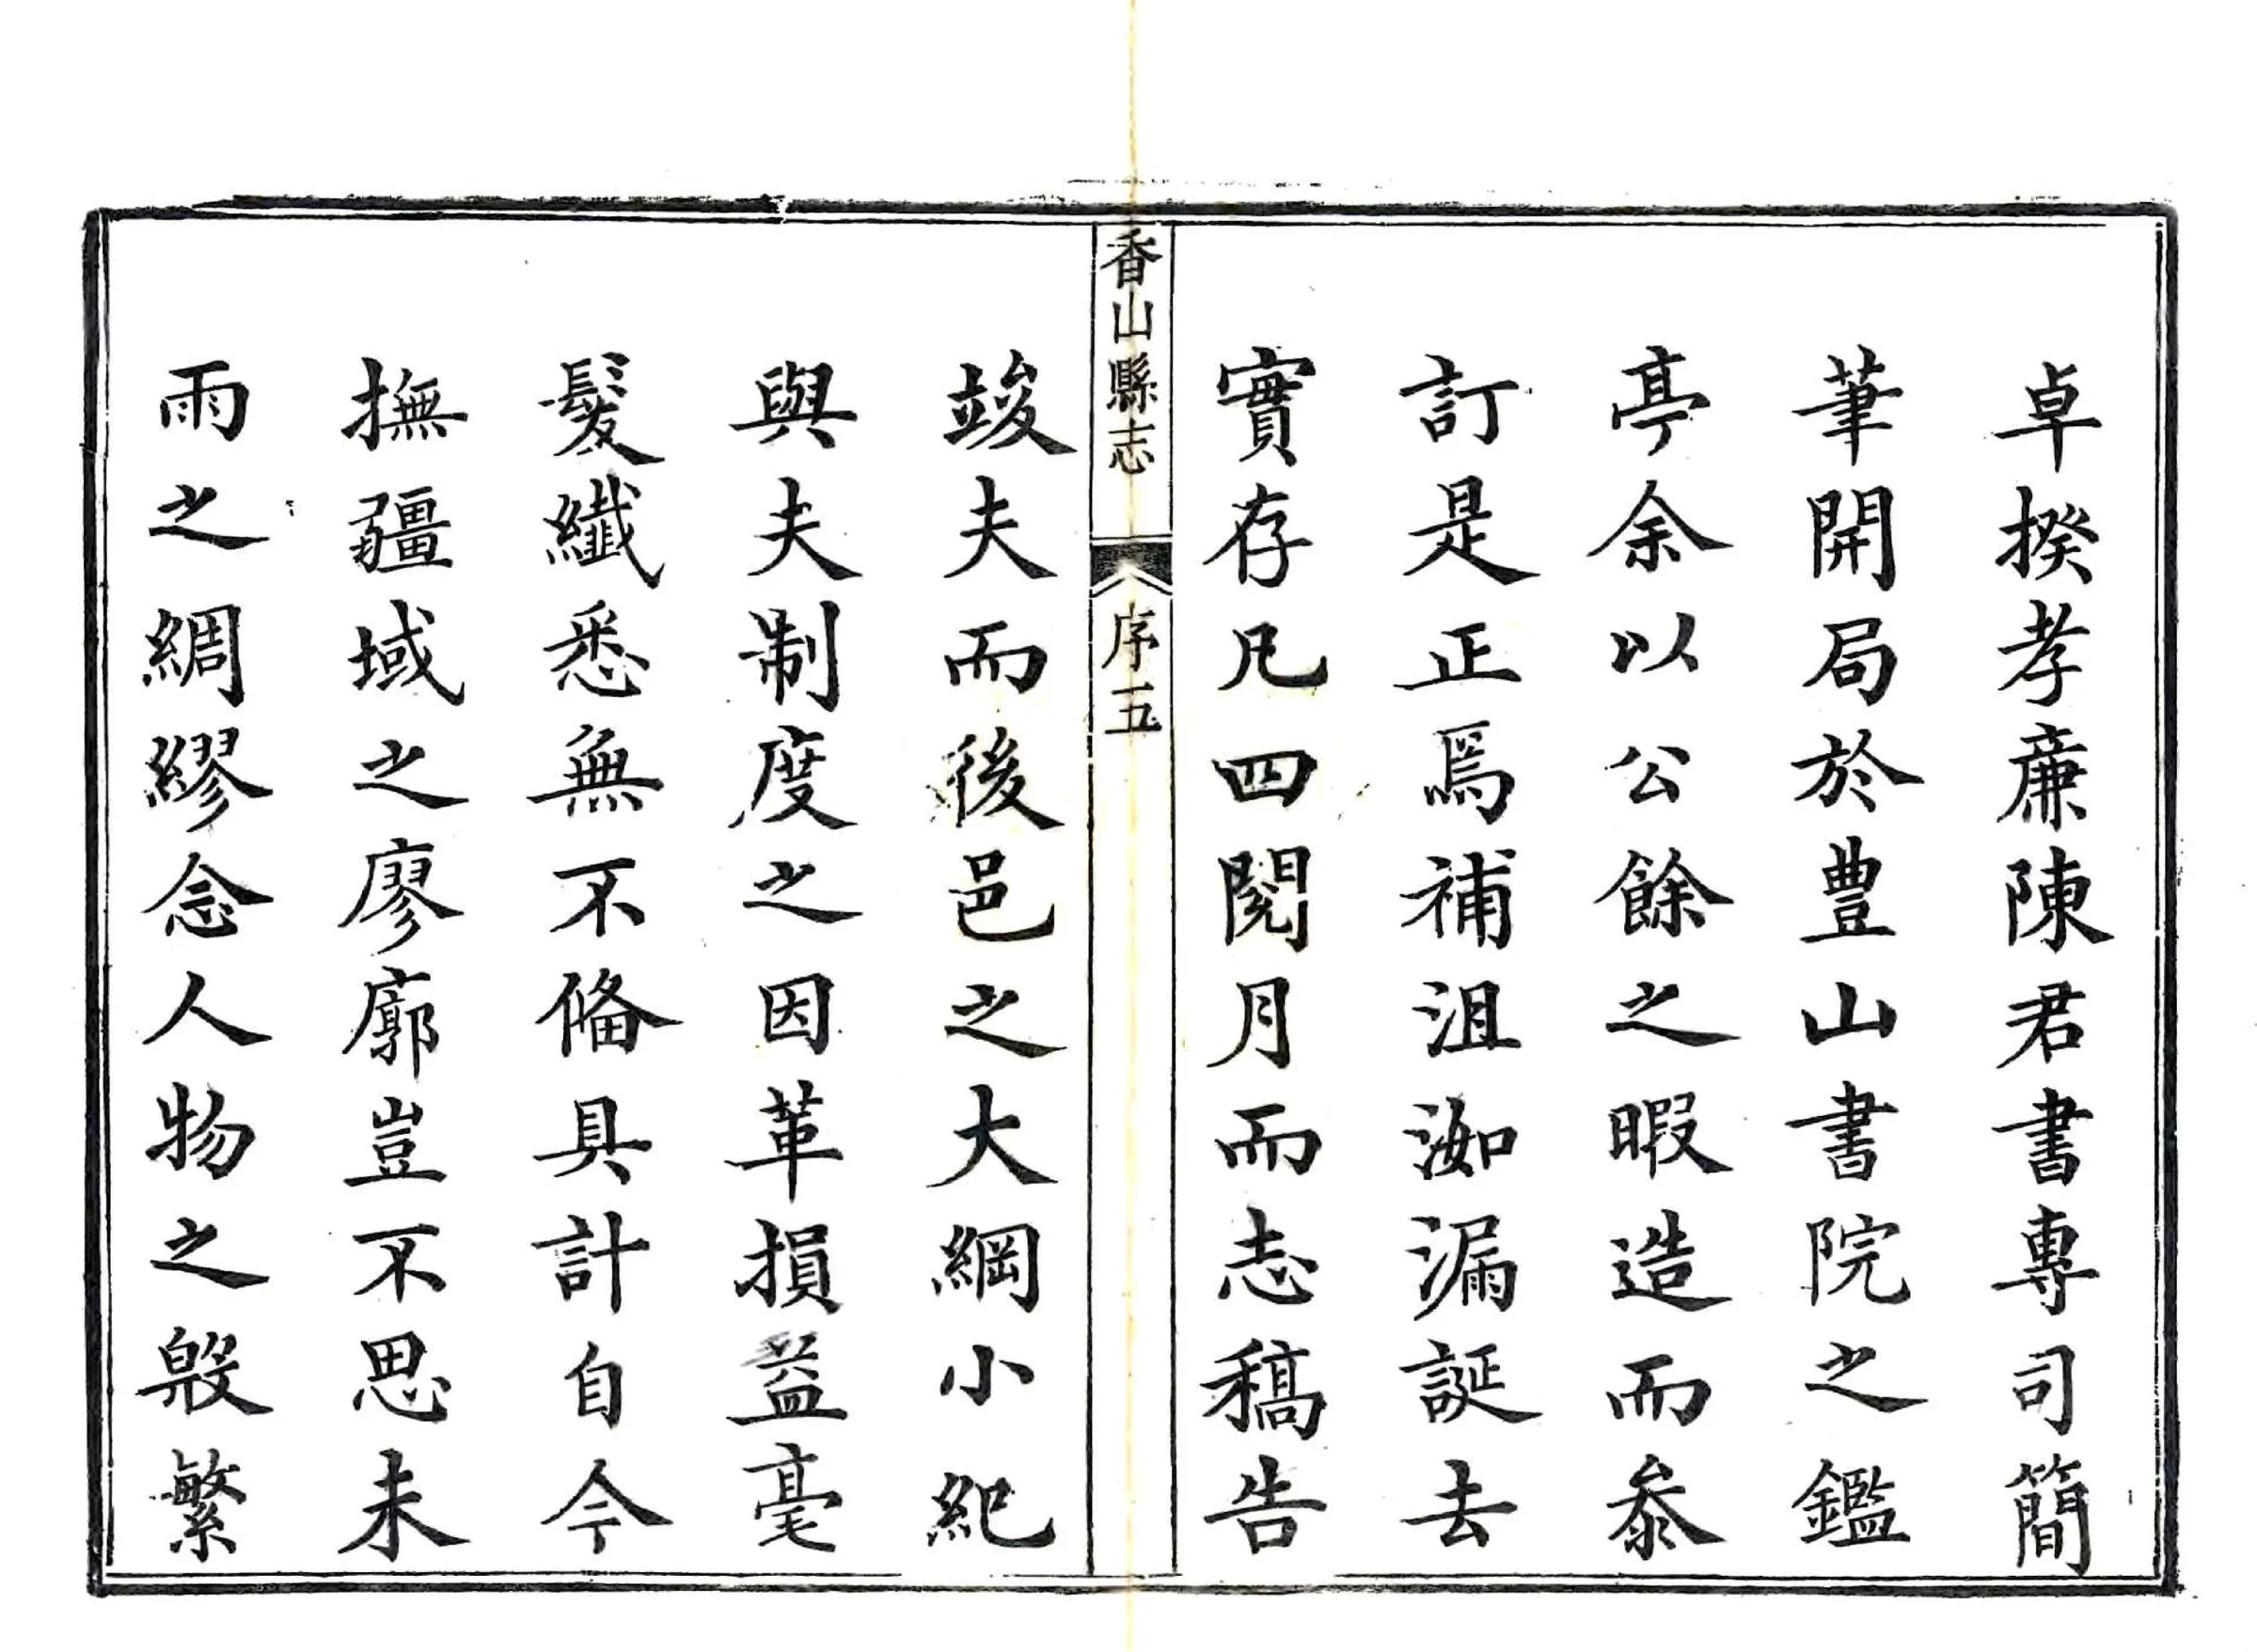 卓揆孝廉陳君書專司簡
筆開局於豊山書院之鑑
亭余以公餘之暇造而叅
訂是正焉補沮洳漏誕去
實存凡四閱月而志稿告
香山縣志
序五
竣夫而後邑之大綱小紀
與夫制度之因革損益毫
髮纖悉無不俻具計自今
撫疆域之廖廓豈不思未
雨之綢繆念人物之殷繁